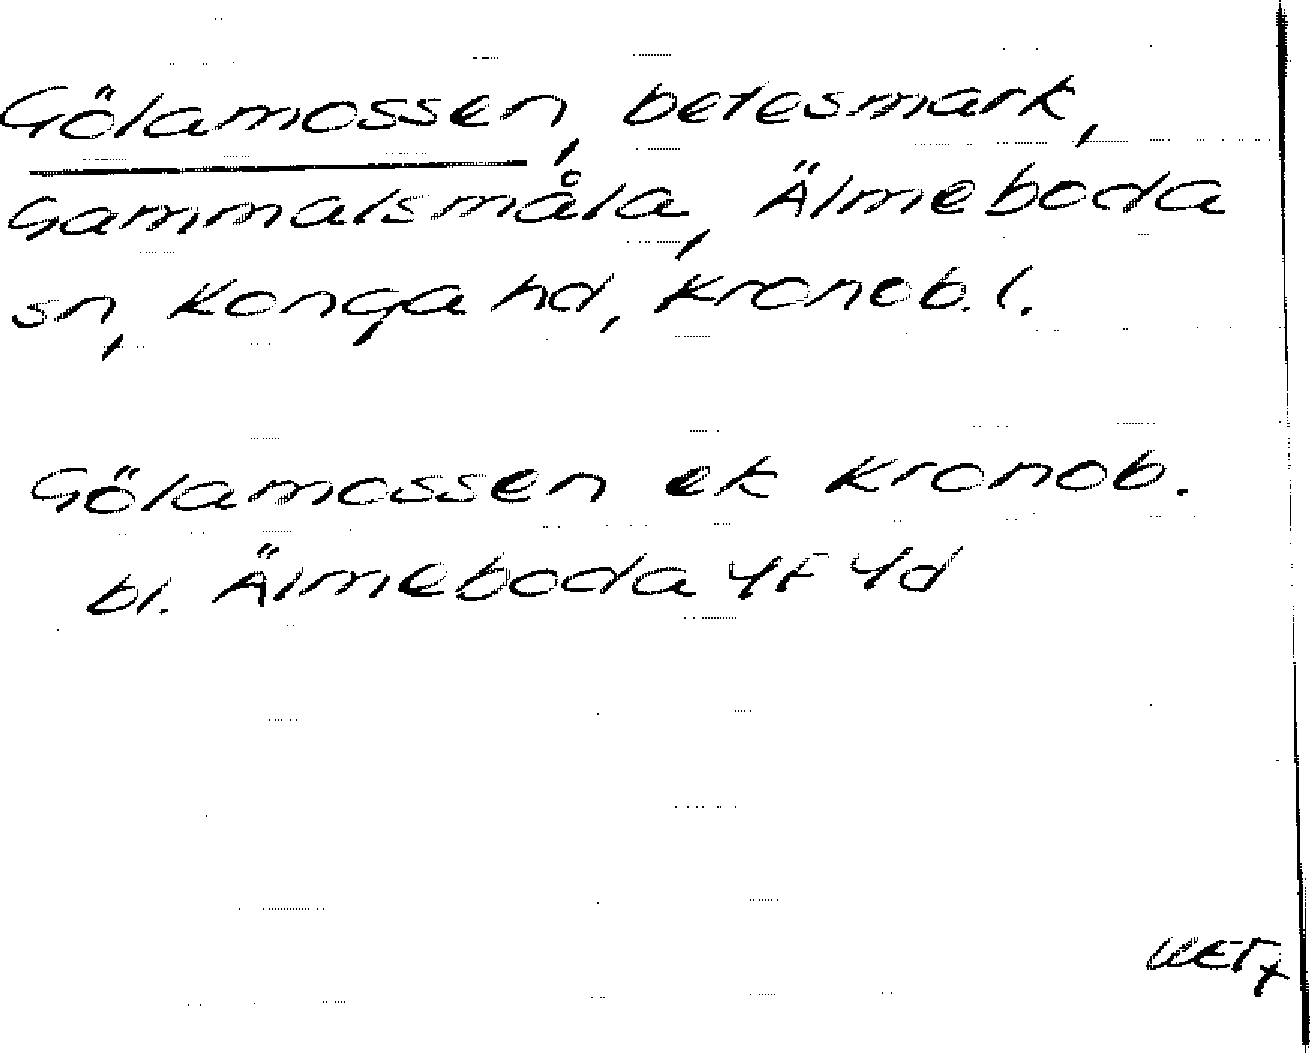 Gölamossen, betesmark,
Gammalsmåla, Älmeboda
sn, Konga hd, Kronob. l.
Gölamossen ek Kronob.
bl. Älmeboda 4F 4d